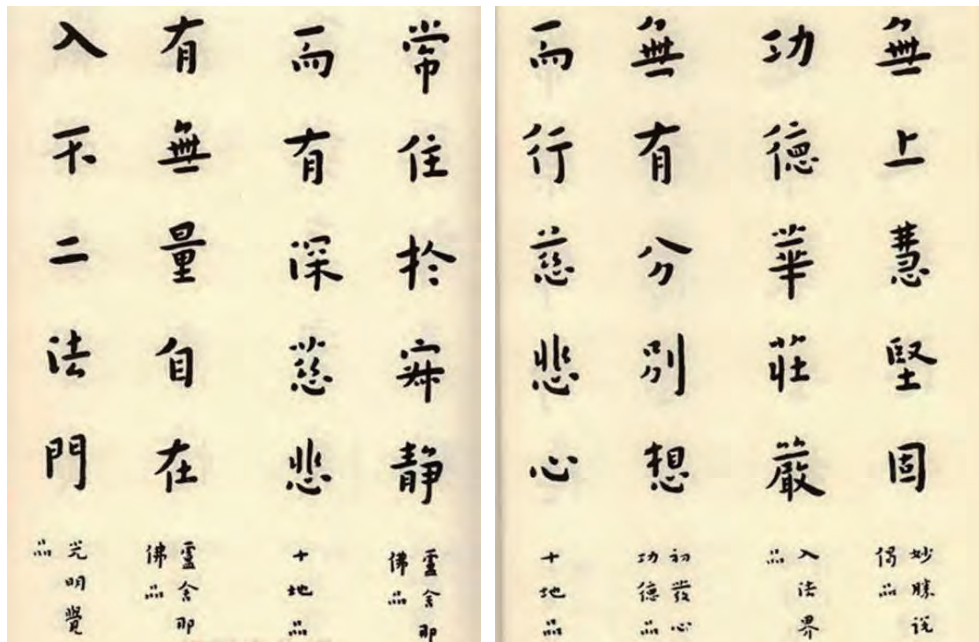 無上慧堅固
妙勝說
偈品
功德華莊嚴
入法界
品
無有分別想
初發心
功德品
而行慈悲心
十地品
常住於寂靜
盧舍那
佛品
而有深慈悲
十地品
有無量自在
盧舍那
佛品
入不二法門
光明覺
品